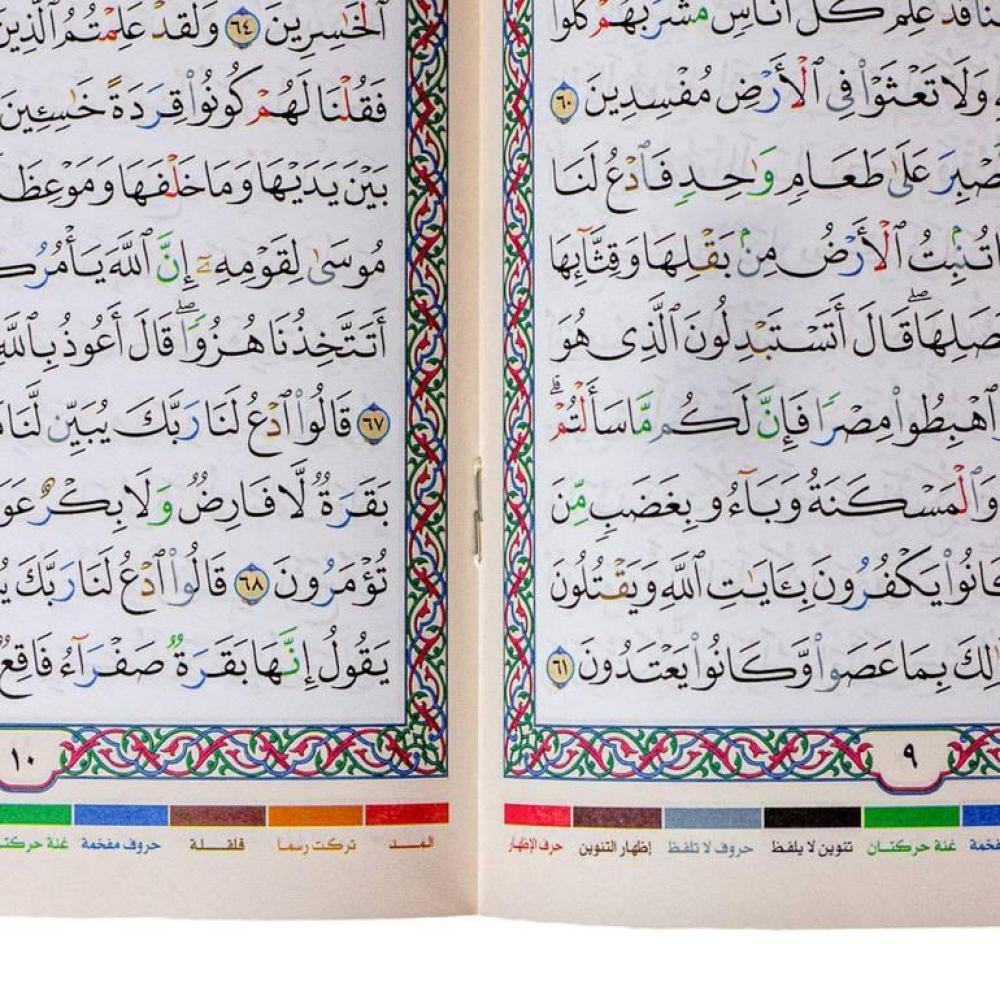 قَدْ عَلِمَ كُلُّ أُنَاسٍ مَّشْرَبَهُمْ كُلُوا
وَلَا تَعْثَوْا۟ فِى ٱلْأَرْضِ مُفْسِدِينَ ٦٠
عَلَىٰ طَعَامٍ وَٰحِدٍ فَٱدْعُ لَنَا
تُنۢبِتُ ٱلْأَرْضُ مِنۢ بَقْلِهَا وَقِثَّآئِهَا
قَالَ أَتَسْتَبْدِلُونَ ٱلَّذِى هُوَ
ٱهْبِطُوا۟ مِصْرًا فَإِنَّ لَكُم مَّا سَأَلْتُمْ ۗ
وَٱلْمَسْكَنَةُ وَبَآءُو بِغَضَبٍ مِّنَ
كَانُوا۟ يَكْفُرُونَ بِـَٔايَـٰتِ ٱللَّهِ وَيَقْتُلُونَ
بِمَا عَصَوا۟ وَّكَانُوا۟ يَعْتَدُونَ ٦١
٩
غنة حركتـان تنوين لا يلفظ حروف لا تلفظ إظهار التنوين حرف الإظهار
ٱلْخَـٰسِرِينَ ٦٤ وَلَقَدْ عَلِمْتُمُ ٱلَّذِينَ
فَقُلْنَا لَهُمْ كُونُوا۟ قِرَدَةً خَـٰسِـِٔينَ
بَيْنَ يَدَيْهَا وَمَا خَلْفَهَا وَمَوْعِظَ
مُوسَىٰ لِقَوْمِهِۦٓ إِنَّ ٱللَّهَ يَأْمُرُك
أَتَتَّخِذُنَا هُزُوًا ۖ قَالَ أَعُوذُ بِٱللَّهِ
٦٧ قَالُوا۟ ٱدْعُ لَنَا رَبَّكَ يُبَيِّن لَّنَا
بَقَرَةٌ لَّا فَارِضٌ وَلَا بِكْرٌ عَوَ
تُؤْمَرُونَ ٦٨ قَالُوا۟ ٱدْعُ لَنَا رَبَّكَ
يَقُولُ إِنَّهَا بَقَرَةٌ صَفْرَآءُ فَاقِعٌ
١٠
المــد تركت رسما قلقـلـة حروف مفخمة غنة